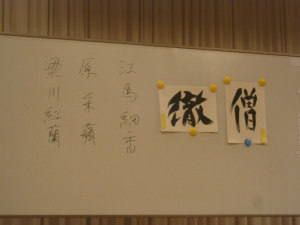 僧
徹
江馬細香
原采蘋
梁川紅蘭